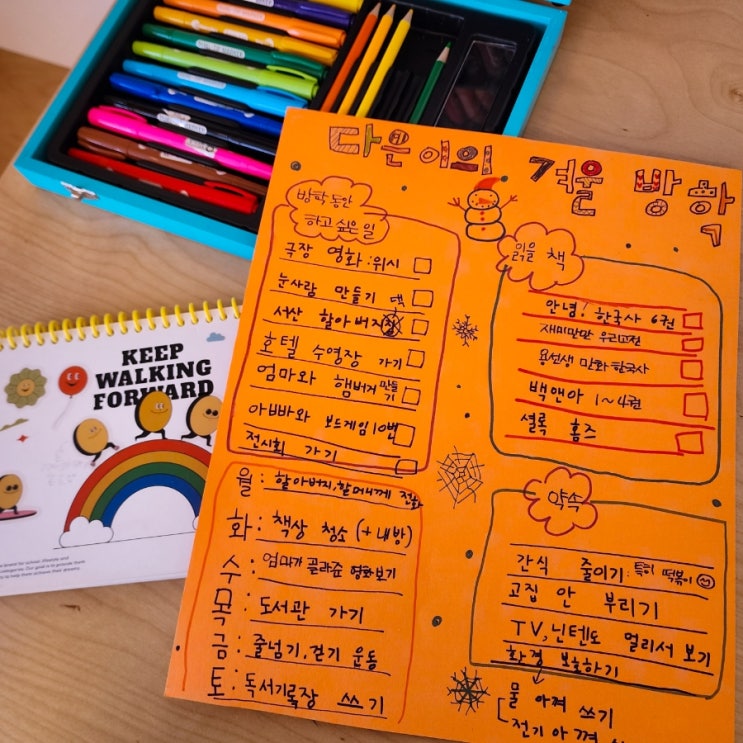 다은이의 겨울 방학
방학동안
하고 싶은 일
극장 영화 : 위시
눈사람 만들기
서산 할아버지집
호텔 수영장 가기
엄마와 햄버거 만들기
아빠와 보드게임 10번
전시회 가기
월 : 할아버지, 할머니께 전화
화 : 책상 청소 (+내방)
수 : 엄마가 골라준 영화보기
목 : 도서관 가기
금 : 줄넘기, 걷기 운동
토 : 독서기록장 쓰기
읽을 책
안녕! 한국사 6권
재미만만 우리고전
용선생 만화 한국사
백앤아 1~4권
셜록 홈즈
약속
간식 줄이기 : 특히 떡볶이
고집 안 부리기
TV, 닌텐도 멀리서 보기
환경 보호하기
물 아껴 쓰기
전기 아껴
KEEP
WALKING
FORWARD